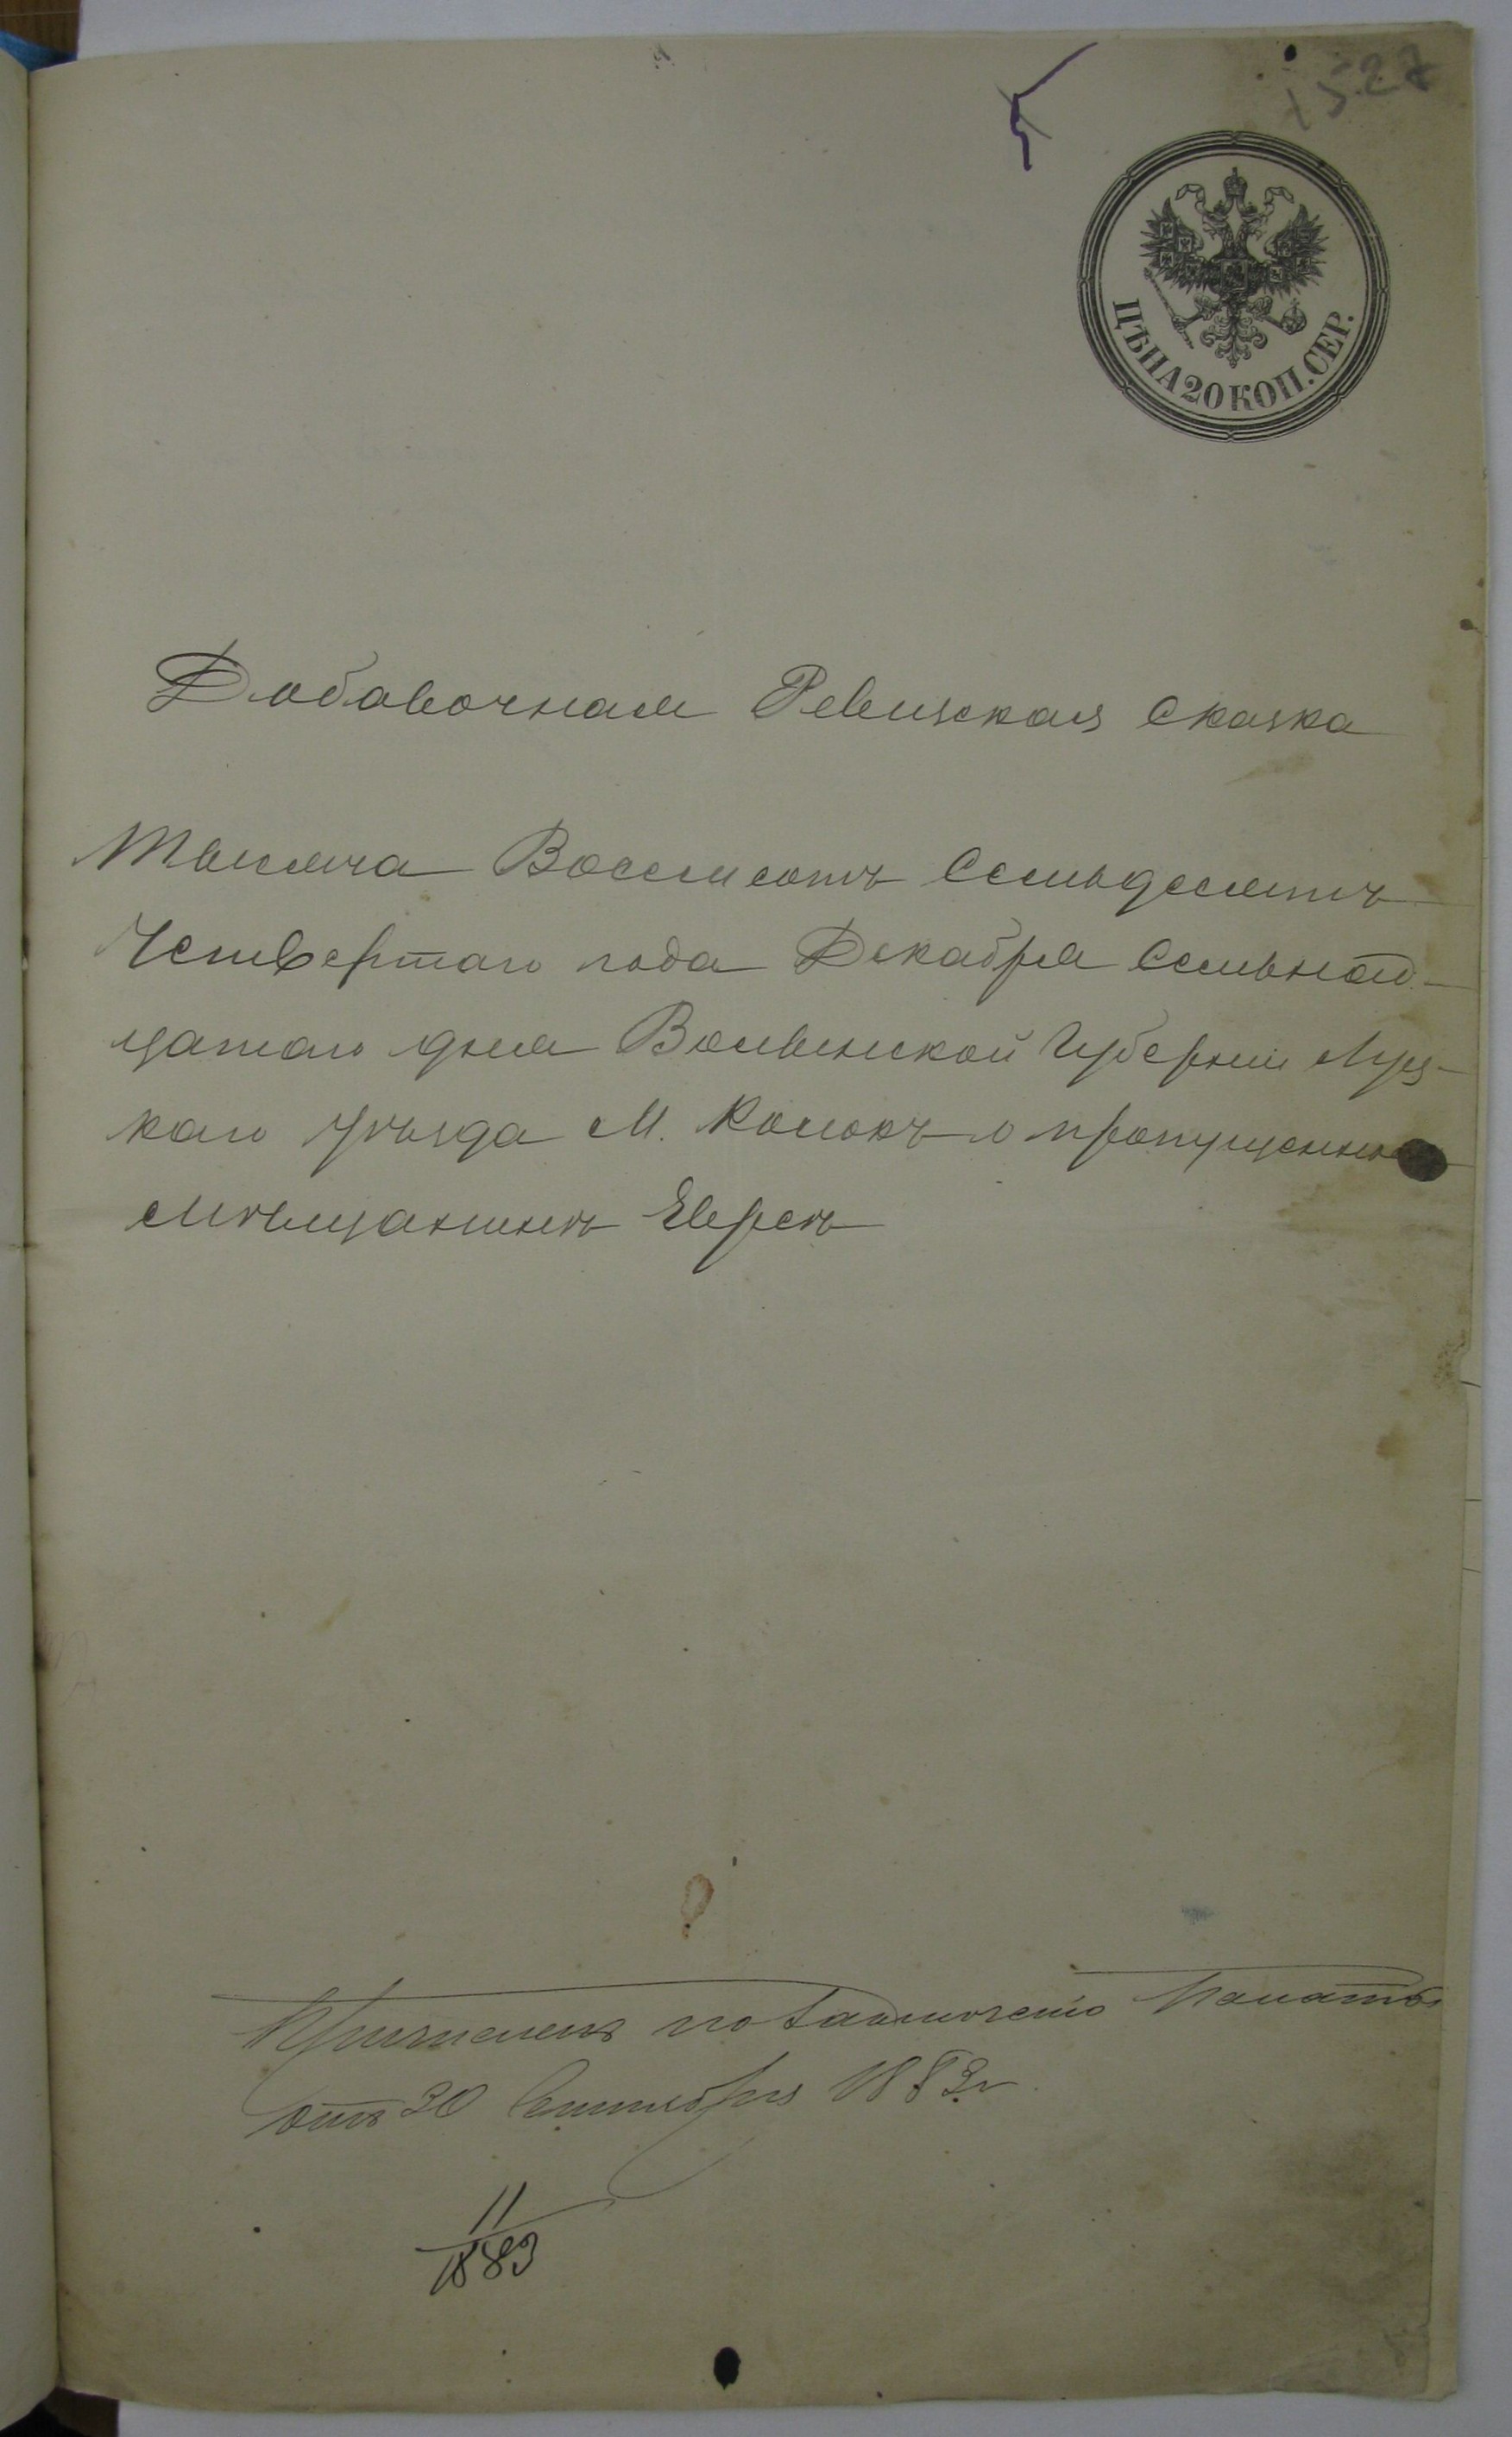 1527
ЦѢНА 20 КОП. СЕР.
Добавочная Ревизская Сказка
Тысяча Восемсотъ Семьдесятъ
Четвертаго года Декабря Семьнад-
цатаго дня Волынской Губерніи Луц-
каго уѣзда М. Колокъ о пропущенномъ
мѣщанинѣ Евреѣ
Причисленъ по Палаты
отъ 30 Сентября 1883 г.
11
1883